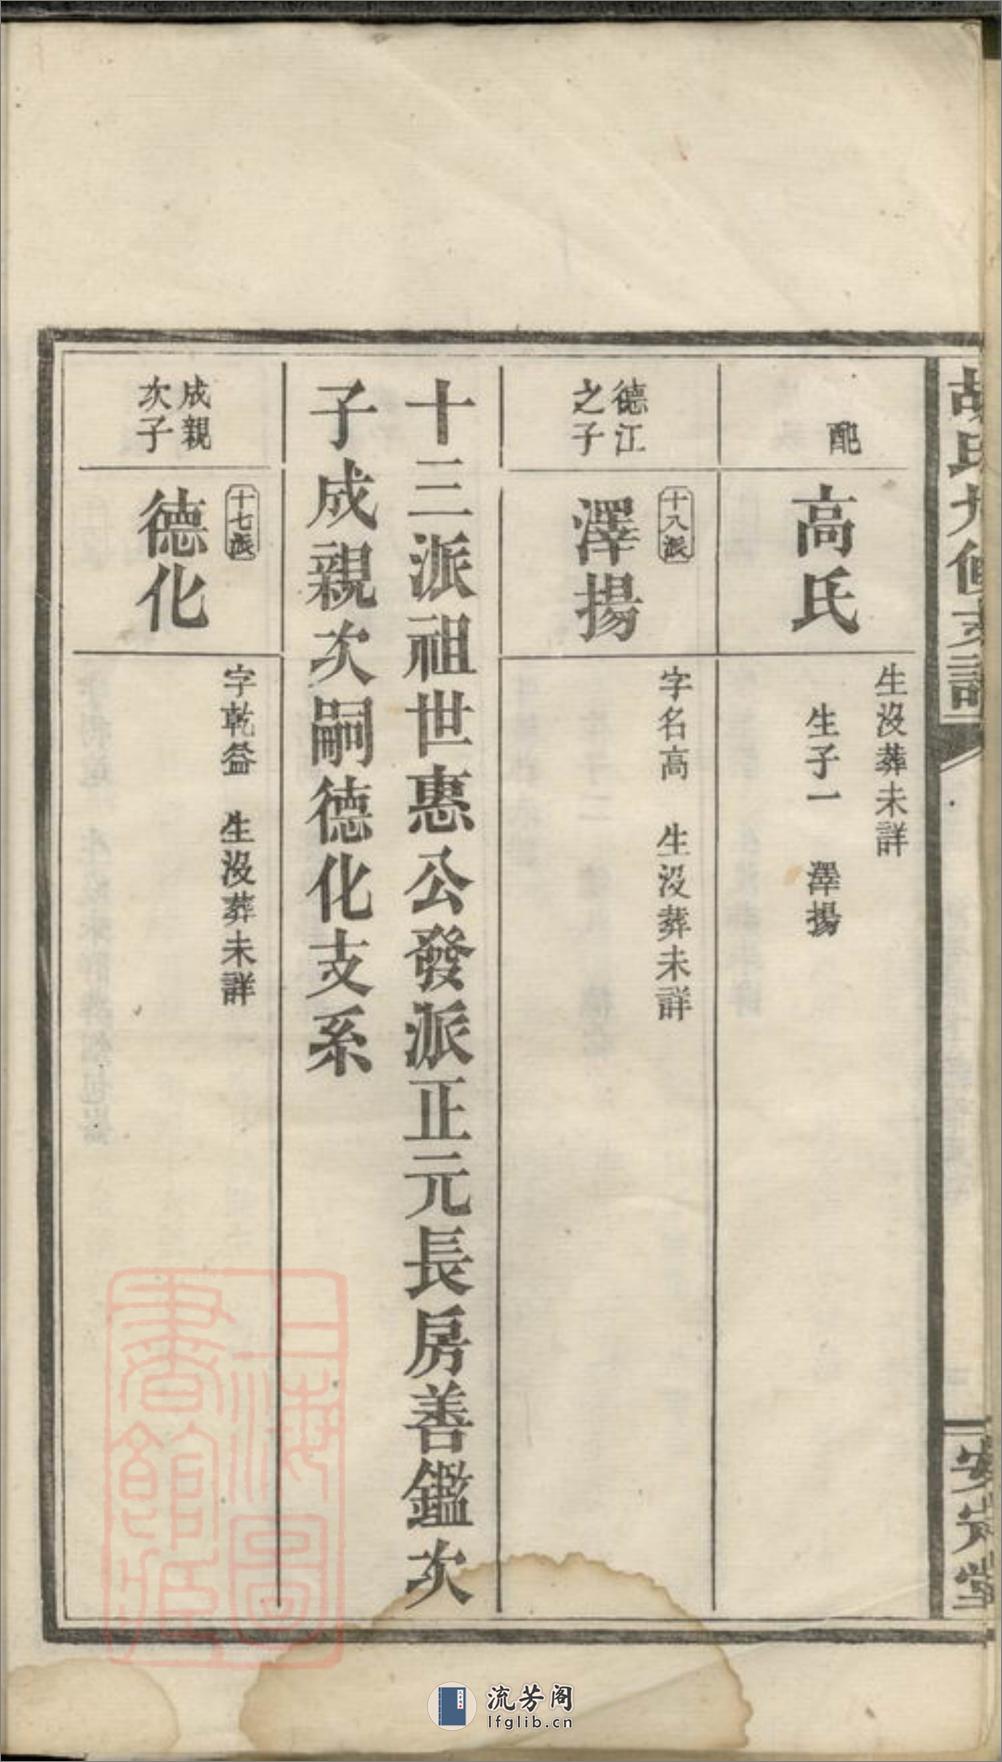 胡氏九修支譜
安定堂
配
高氏
生沒葬未詳
生子一　澤揚
德江
之子
十八派
澤揚
字名高　生沒葬未詳
十三派祖世惠公發派正元長房善鑑次
子成親次嗣德化支系
成親
次子
十七派
德化
字乾益　生沒葬未詳
上海圖
書館藏
流芳阁
lfglib.cn